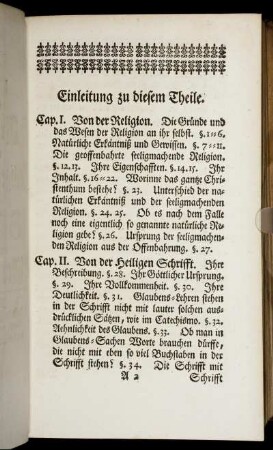 Einleitung zu diesem Theile.
Cap. I. Von der Religion. Die Gründe und
das Wesen der Religion an ihr selbst. §. 1=6.
Natürliche Erkäntniß und Gewissen. §. 7=11.
Die geoffenbahrte seeligmachende Religion.
§. 12. 13. Ihre Eigenschafften. §. 14. 15. Ihr
Inhalt. §. 16=22. Worinne das gantze Chri-
stenthum bestehe? §. 23. Unterschied der na-
türlichen Erkäntniß und der seeligmachenden
Religion. §. 24. 25. Ob es nach dem Falle
noch eine eigentlich so genannte natürliche Re-
ligion gebe? §. 26. Ursprung der seeligmachen-
den Religion aus der Offenbahrung. §. 27.
Cap. II. Von der Heiligen Schrifft. Ihre
Beschreibung. §. 28. Ihr Göttlicher Ursprung.
§. 29. Ihre Vollkommenheit. §. 30. Ihre
Deutlichkeit. §. 31. Glaubens-Lehren stehen
in der Schrifft nicht mit lauter solchen aus-
drücklichen Sätzen, wie im Catechismo. §. 32.
Aehnlichkeit des Glaubens. §. 33. Ob man in
Glaubens-Sachen Worte brauchen dürffe,
die nicht mit eben so viel Buchstaben in der
Schrifft stehen? §. 34. Die Schrifft mit
A 2 Schrifft